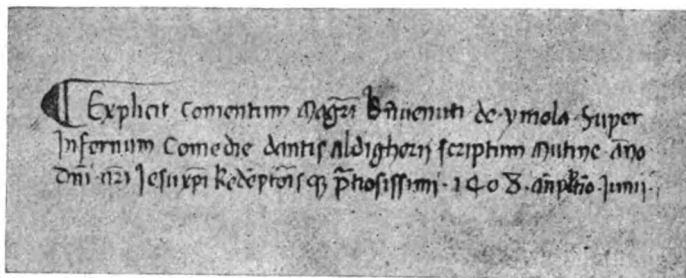 Explicit Comentum Magr̄i Bauenuti de ymola Super
Infernum Comedie dantis Aldigherij scriptum Mutine an̄o
Dn̄i nr̄i Jesu xp̄i Redēptoīs q̄ p̄tiosissimi 1408 Junii